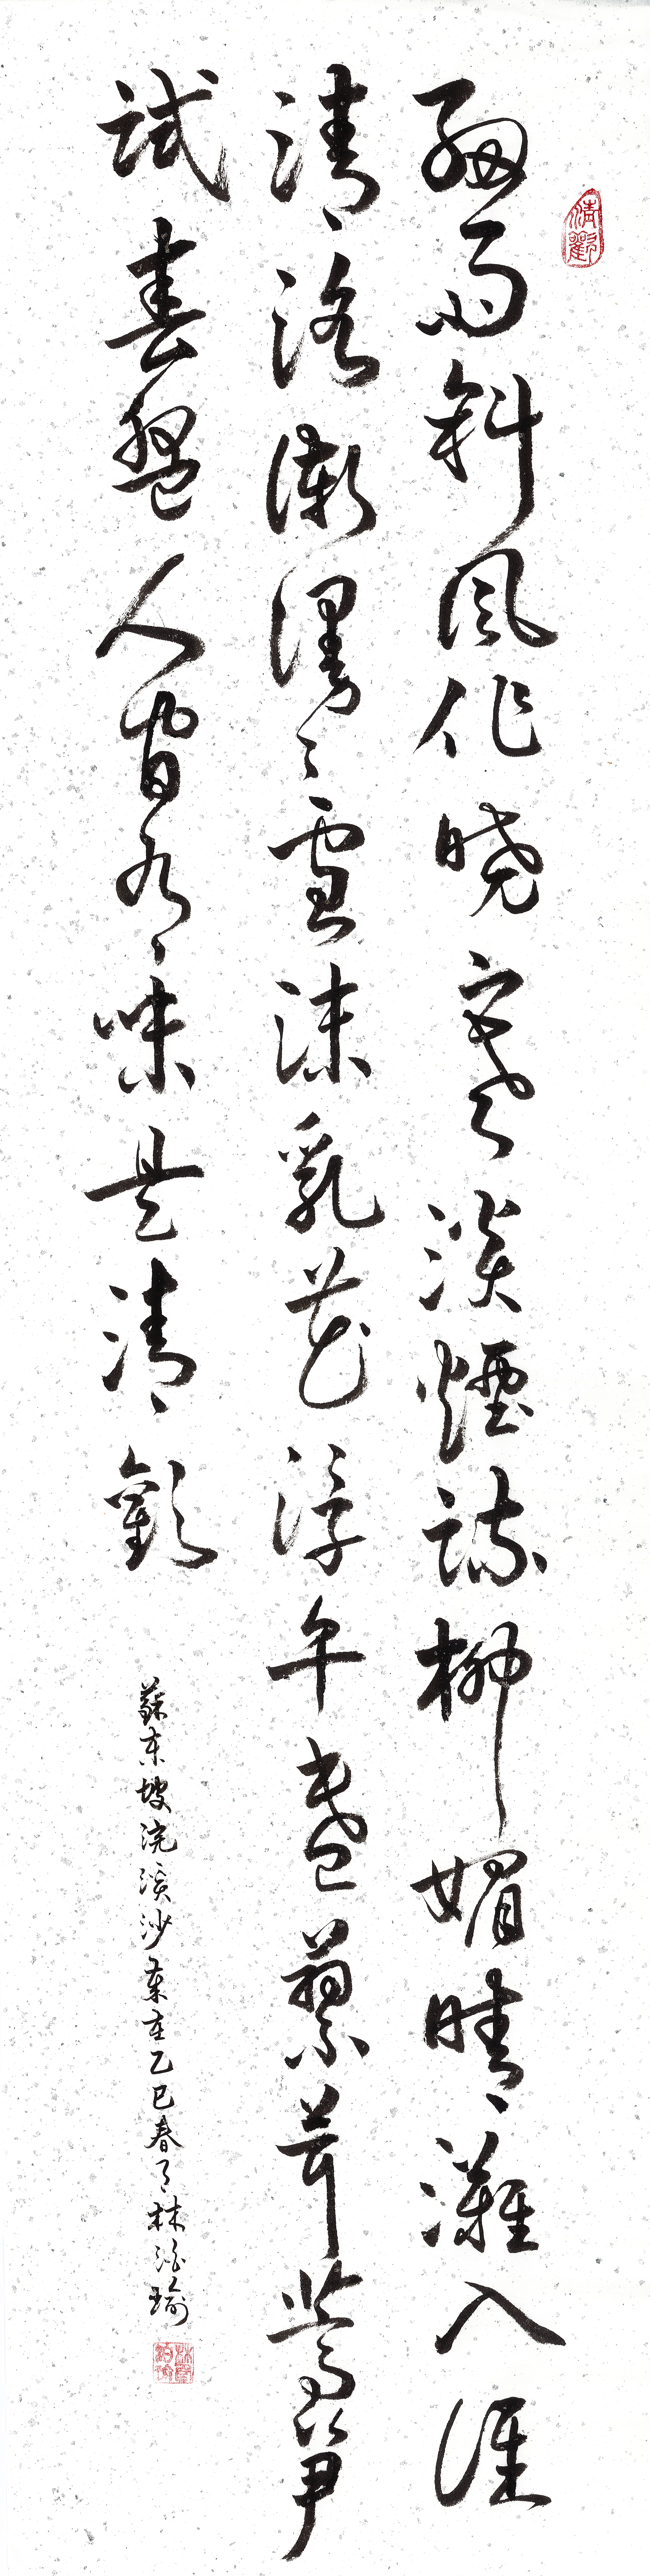 清歡
細雨斜風作曉寒淡煙疎柳媚晴灘入淮
清洛漸漫〻雪沫乳花浮午盞蓼茸蒿筍
試春盤人間有味是清歡
蘇東坡浣溪沙 歲在乙巳春月林 瑜